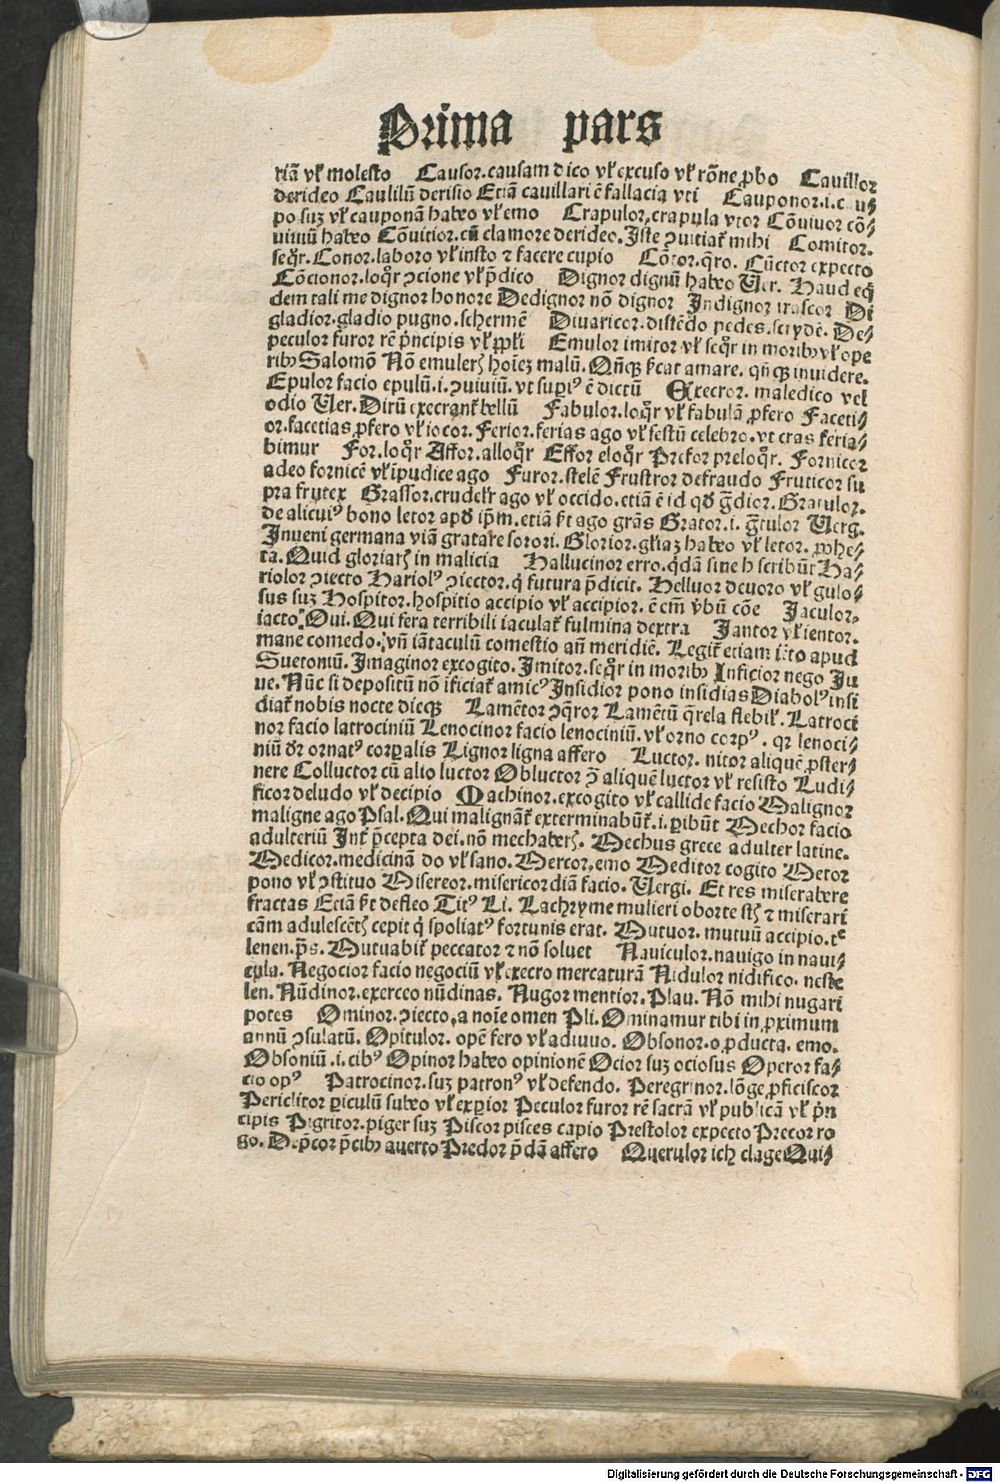 Prima pars
riā vł molesto Causor.causam dico vł excuso vł rōne ꝓbo Cauillor
derideo Cauillū derisio Etiā cauillari ē fallacia vti Cauponor.i.cau⸗
po suꝫ vł cauponā habeo vł emo Crapulor,crapula vtor Cōuiuor cō⸗
uiuiū habeo Cōuitior.cū clamore derideo.Iste ꝯuitiat᷑ mihi Comitor.
seqr̄. Conor.laboro vł insto ⁊ facere cupio Cōtor.q̄ro. Cūctor expecto
Cōcionor.loqr̄ ꝯcione vł p̄dico Dignor dignū habeo Uer. Haud eq̄
dem tali me dignor honore Dedignor nō dignor Indignor irascor Di
gladior.gladio pugno.schermē Diuaricor.distēdo pedes.scrydē. De⸗
peculor furor rē p̄ncipis vł ppłi Emulor imitor vł seqr̄ in moribꝰ vł ope
ribꝰ Salomō Nō emulerꝭ hoīeꝫ malū. Qn̄qꝫ s̄cat amare. qn̄qꝫ inuidere.
Epulor facio epulū.i.ꝯuiuiū.vt supꝰ ē dictū Execror. maledico vel
odio Uer.Dirū execrant᷑ bellū Fabulor.loqr̄ vł fabulā ꝓfero Faceti⸗
or.facetias ꝓfero vł iocor.Ferior.ferias ago vł festū celebro.vt cras feria⸗
bimur For.loqr̄ Affor.alloqr̄ Effor eloqr̄ Prefor preloqr̄. Fornicor
adeo fornicē vł īpudice ago Furor.stelē Frustror defraudo Fruticor su
pra frutex Grassor.crudelr̄ ago vł occido.etiā ē id qð g̃dior.Gratulor.
de alicuiꝰ bono letor apð ip̄m.etiā s̄t ago grās Grator.i. g̃tulor Uerg.
Inueni germana viā gratare sorori. Glorior.głiaꝫ habeo vł letor. ꝓphe⸗
ta.Quid gloriarꝭ in malicia Hallucinor erro.q̄dā sine h scribūt Ha⸗
riolor ꝯiecto Hariolꝰ ꝯiector.q̇ futura p̄dicit. Helluor deuoro vł gulo⸗
sus suꝫ Hospitor.hospitio accipio vł accipior. ē em̄ v̄bū cōe Iaculor,
iacto.Oui.Qui fera terribili iaculat᷑ fulmina dextra Iantor vł ientor.
mane comedo.vn̄ iātaculū comestio an̄ meridiē. Legit᷑ etiam iēto apud
Suetoniū. Imaginor excogito. Imitor.seqr̄ in moribꝰ Inficior nego Iu
ue. Nūc si depositū nō ificiat᷑ amicꝰ Insidior pono insidias Diabolꝰ insi
diat᷑ nobis nocte dieqꝫ Lamētor ꝯq̄ror Lamētū q̄rela flebił. Latroci
nor facio latrociniū Lenocinor facio lenociniū. vł orno corpꝰ. qꝛ lenoci⸗
niū dr̄ ornatꝰ corꝑalis Lignor ligna affero Luctor. nitor aliquē ꝓster⸗
nere Colluctor cū alio luctor Obluctor ꝯ̄ aliquē luctor vł resisto Ludi⸗
ficor deludo vł decipio Machinor.excogito vł callide facio Malignor
maligne ago Psal.Qui malignāt᷑ exterminabūt᷑.i.ꝑibūt Mechor facio
adulteriū Int᷑ p̄cepta dei.nō mechaberꝭ. Mechus grece adulter latine.
Medicor.medicinā do vł sano. Mercor,emo Meditor cogito Metor
pono vł ꝯstituo Misereor.misericordiā facio. Uergi. Et res miserabere
fractas Etiā s̄t defleo Titꝰ Li. Lachryme mulieri oborte stꝭ ⁊ miserari
cām adulescētꝭ cepit q̇ spoliatꝰ fortunis erat. Mutuor. mutuū accipio.te
lenen.p̄s. Mutuabit᷑ peccator ⁊ nō soluet Nauiculor.nauigo in naui⸗
cula. Negocior facio negociū vł execro mercaturā Nidulor nidifico. neste
len. Nūdinor.exerceo nūdinas. Nugor mentior.Plau. Nō mihi nugari
potes Ominor.ꝯiecto,a noīe omen Pli.Ominamur tibi in ꝓximum
annū ꝯsulatū. Opitulor. opē fero vł adiuuo. Obsonor.o ꝓducta. emo.
Obsoniū.i.cibꝰ Opinor habeo opinionē Ocior suꝫ ociosus Operor fa⸗
cio opꝰ Patrocinor.suꝫ patronꝰ vł defendo. Peregrinor.lōge ꝓficiscor
Periclitor ꝑiculū subeo vł exꝑior Peculor furor rē sacrā vł publicā vł p̄n
cipis Pigritor.piger suꝫ Piscor pisces capio Prestolor expecto Precor ro
go. Dep̄cor p̄cibꝰ auerto Predor p̄dā affero Querulor ich clage Qui⸗
Digitalisierung gefördert durch die Deutsche Forschungsgemeinschaft - DFG